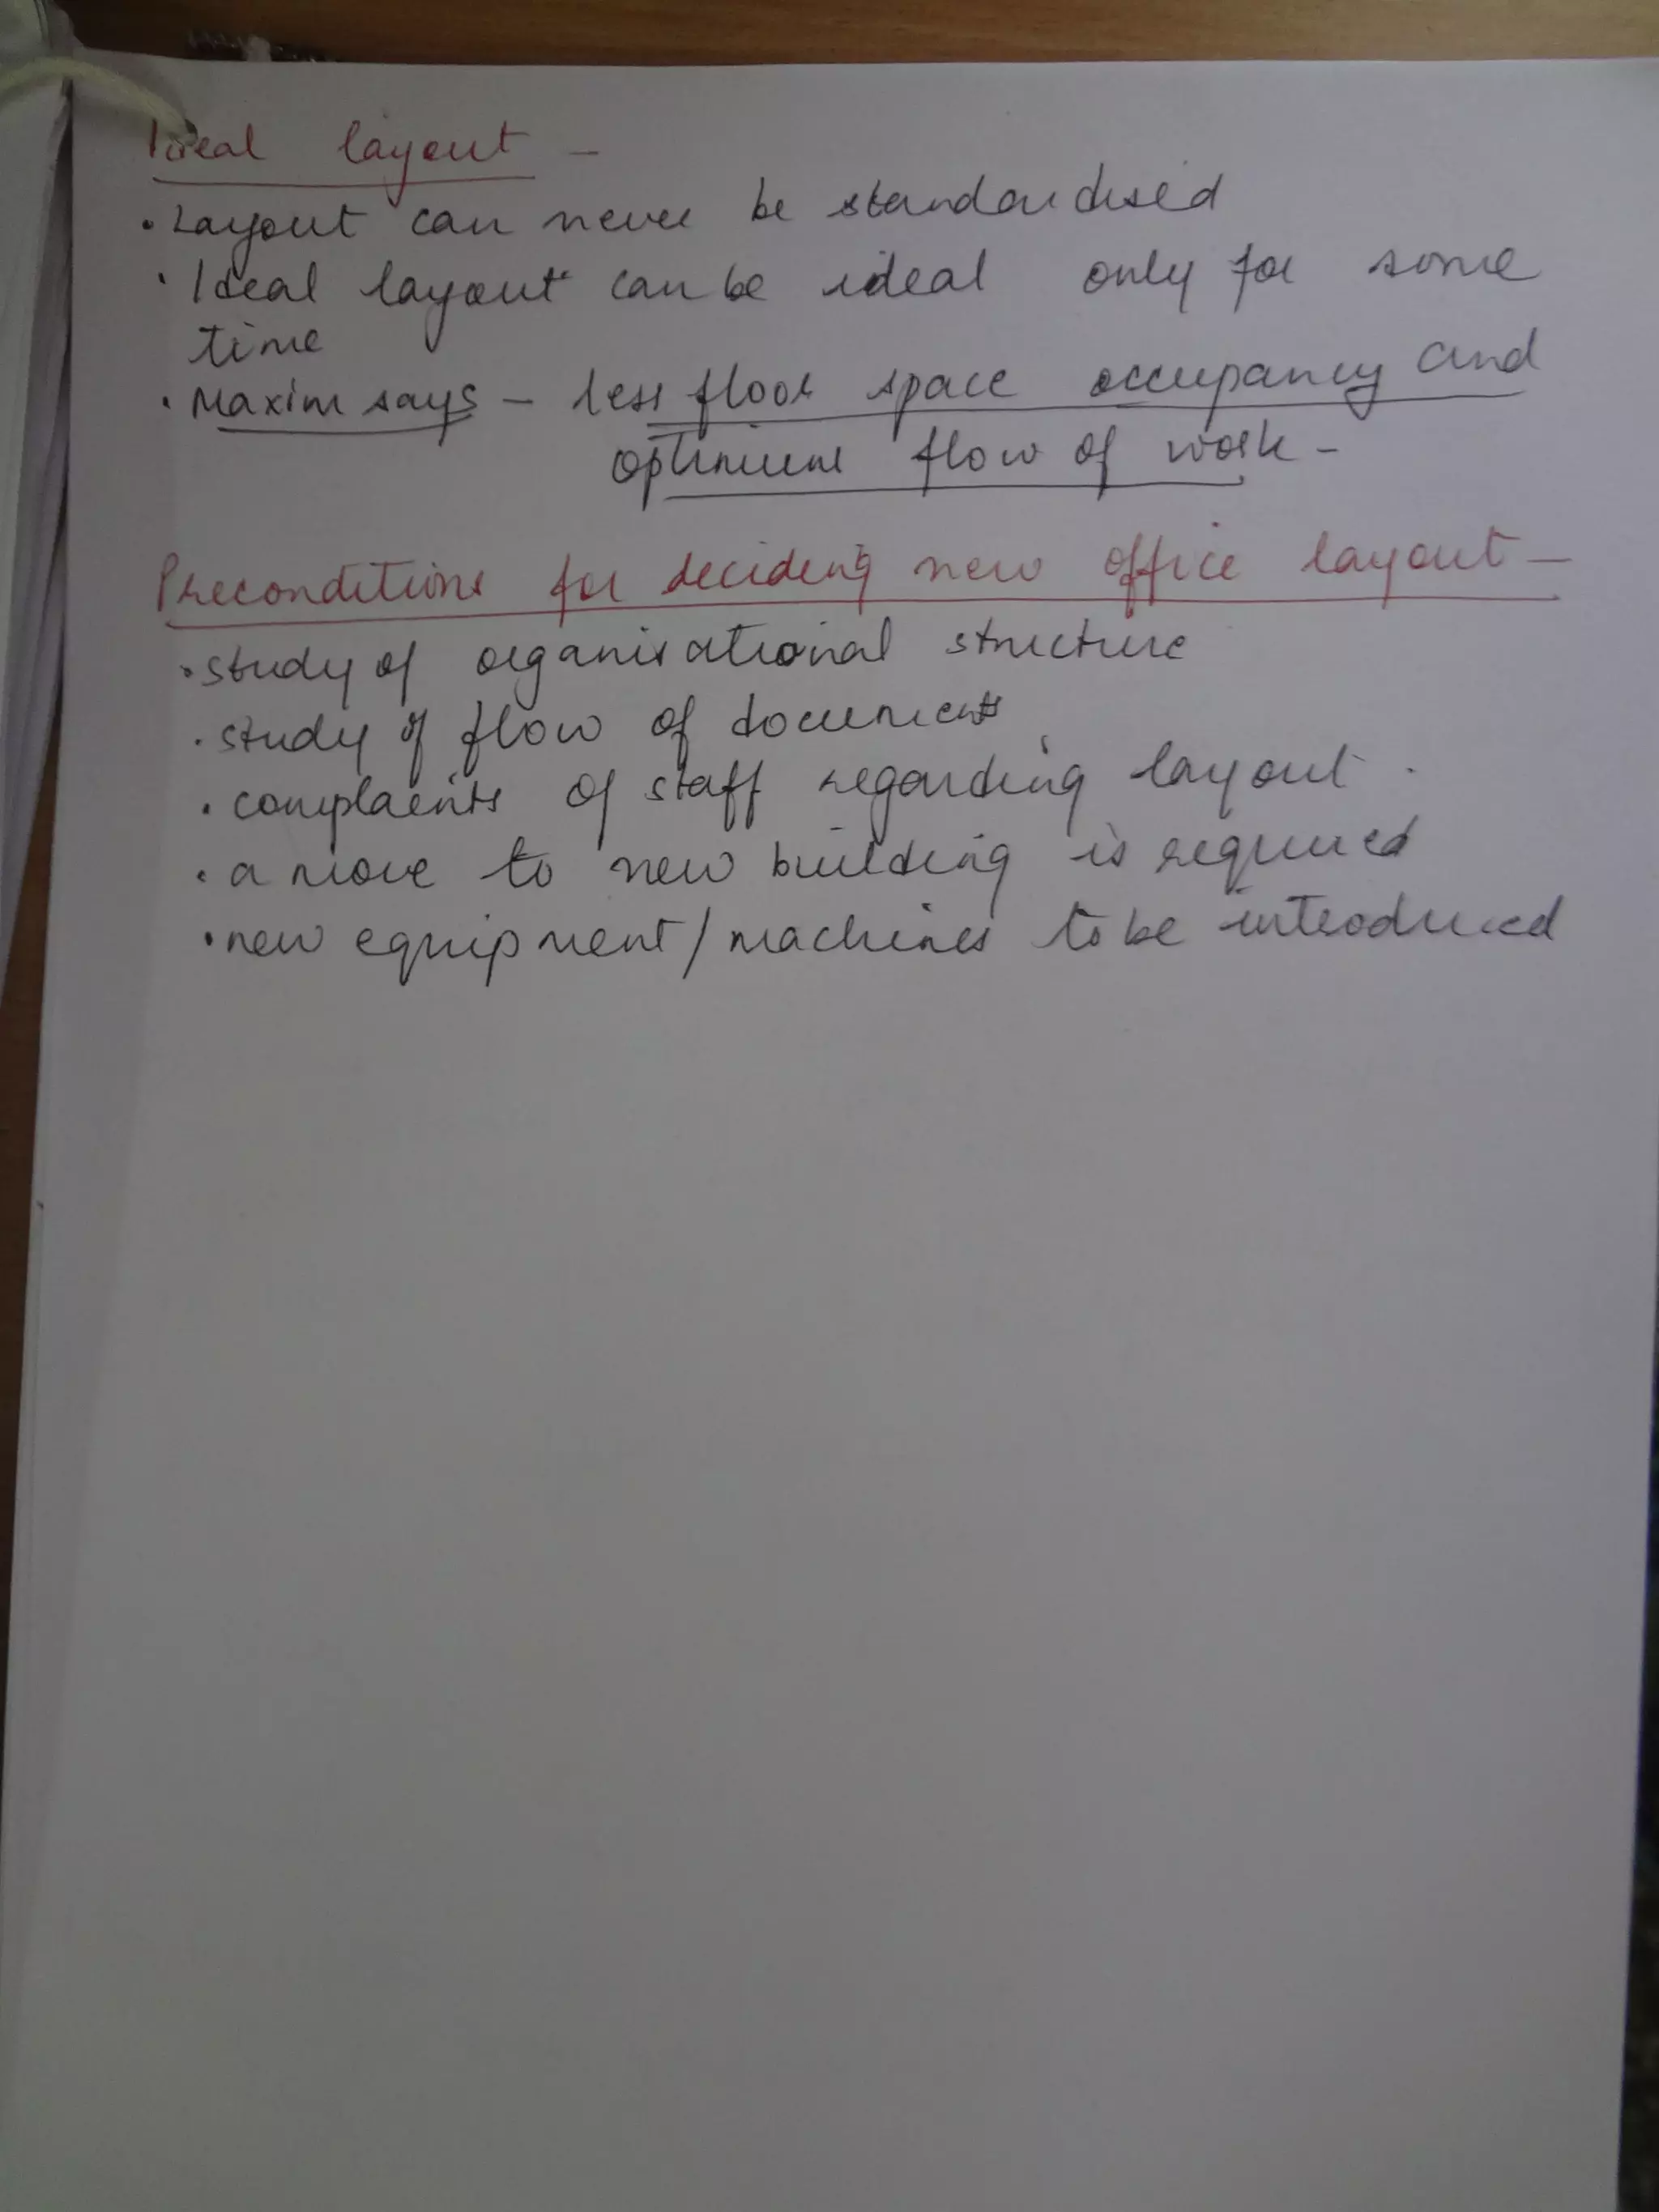 Ideal layout -
• Layout can never be standardised
• Ideal layout can be ideal only for some
time
• Maxim says - less floor space occupancy and
optimum flow of work -
Preconditions for deciding new office layout -
• study of organisational structure
• study of flow of documents
• complaints of staff regarding layout.
• a move to new building is required
• new equipment/machines to be introduced